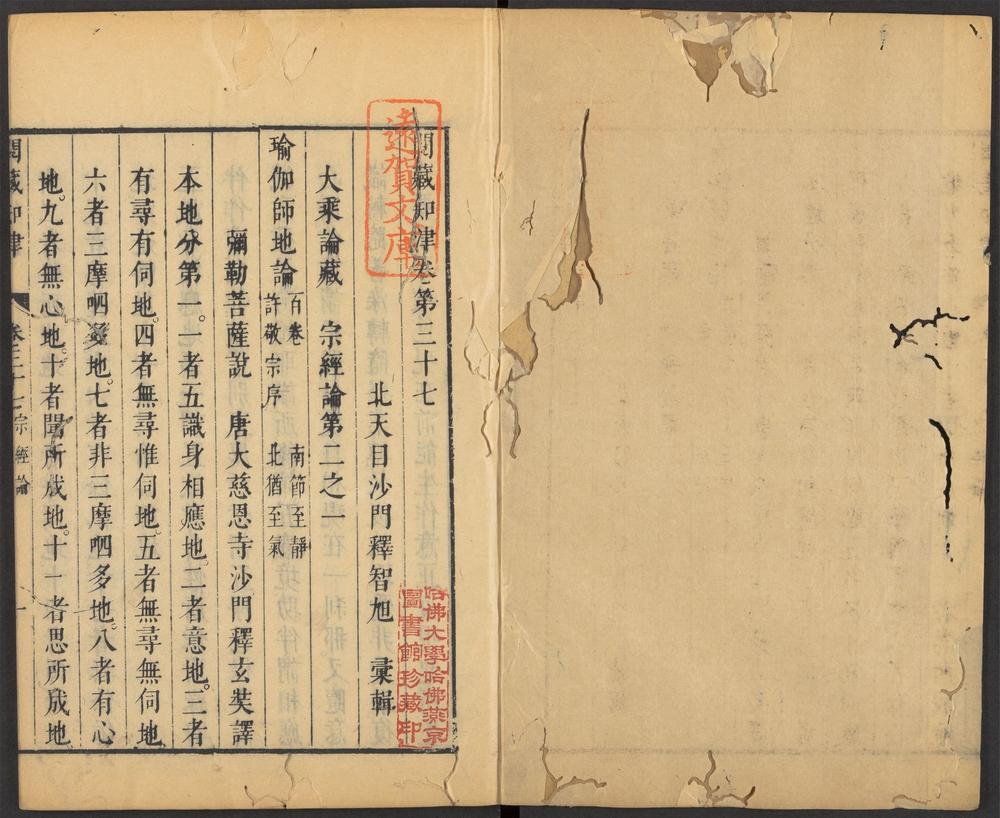 閱藏知津卷第三十七
北天目沙門釋智旭　彙輯
大乘論藏　宗經論第二之一
瑜伽師地論
百卷
許敬宗序
南節至靜
北猶至氣
彌勒菩薩說　唐大慈恩寺沙門釋玄奘譯
本地分第一。一者五識身相應地。二者意地。三者
有尋有伺地。四者無尋惟伺地。五者無尋無伺地。
六者三摩呬多地。七者非三摩呬多地。八者有心
地。九者無心地。十者聞所成地。十一者思所成地。
閱藏知津
卷三十七
宗經論
一
遠賀文庫
哈佛大學哈佛燕京
圖書館珍藏印